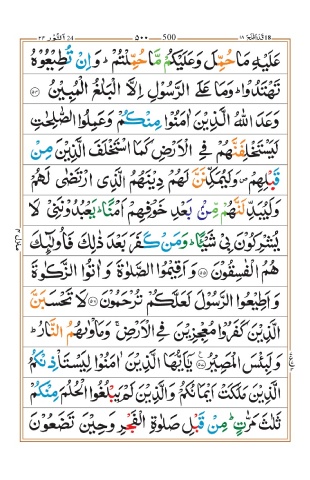 قد افلح ١٨ ٥٠٠ 500 النور 24
عَلَيْهِ مَا حُمِّلَ وَعَلَيْكُمْ مَّا حُمِّلْتُمْ ؕ وَاِنْ تُطِيْعُوْهُ
تَهْتَدُوْا ؕ وَمَا عَلَى الرَّسُوْلِ اِلَّا الْبَلٰغُ الْمُبِيْنُ ﴿۵۴﴾
وَعَدَ اللّٰهُ الَّذِيْنَ اٰمَنُوْا مِنْكُمْ وَعَمِلُوا الصّٰلِحٰتِ
لَيَسْتَخْلِفَنَّهُمْ فِى الْاَرْضِ كَمَا اسْتَخْلَفَ الَّذِيْنَ مِنْ
قَبْلِهِمْ ۪ وَلَيُمَكِّنَنَّ لَهُمْ دِيْنَهُمُ الَّذِى ارْتَضٰى لَهُمْ
وَلَيُبَدِّلَنَّهُمْ مِّنْۢ بَعْدِ خَوْفِهِمْ اَمْنًا ؕ يَعْبُدُوْنَنِىْ لَا
يُشْرِكُوْنَ بِىْ شَيْـًٔا ؕ وَمَنْ كَفَرَ بَعْدَ ذٰلِكَ فَاُولٰٓٮِٕكَ
هُمُ الْفٰسِقُوْنَ ﴿۵۵﴾ وَاَقِيْمُوا الصَّلٰوةَ وَاٰتُوا الزَّكٰوةَ
وَاَطِيْعُوا الرَّسُوْلَ لَعَلَّكُمْ تُرْحَمُوْنَ ﴿۵۶﴾ لَا تَحْسَبَنَّ
الَّذِيْنَ كَفَرُوْا مُعْجِزِيْنَ فِى الْاَرْضِ ۚ وَمَاْوٰٮهُمُ النَّارُ ؕ
وَلَبِئْسَ الْمَصِيْرُ ﴿۵۷﴾ يٰۤاَيُّهَا الَّذِيْنَ اٰمَنُوْا لِيَسْتَاْذِنْكُمُ
الَّذِيْنَ مَلَكَتْ اَيْمَانُكُمْ وَالَّذِيْنَ لَمْ يَبْلُغُوا الْحُلُمَ مِنْكُمْ
ثَلٰثَ مَرّٰتٍ ؕ مِنْ قَبْلِ صَلٰوةِ الْفَجْرِ وَحِيْنَ تَضَعُوْنَ